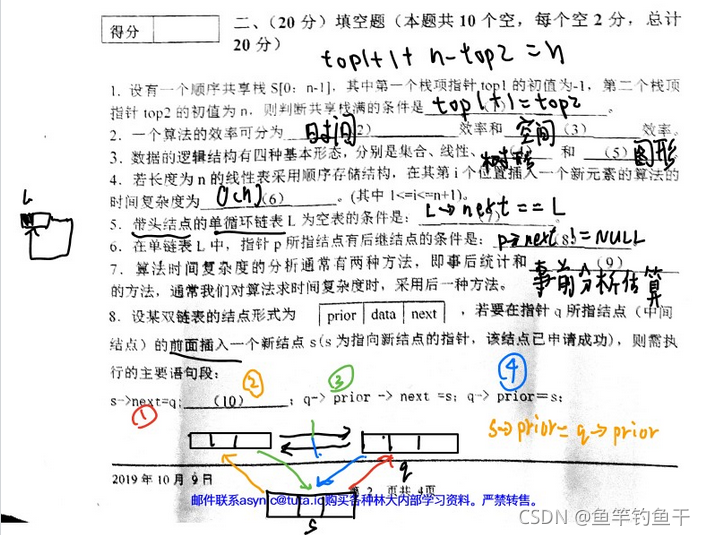 得分
二、（20分）填空题（本题共10个空，每个空2分，总计
20分）
top1+1+ n-top2 = n
1. 设有一个顺序共享栈 S[0：n-1]，其中第一个栈项指针 top1 的初值为-1，第二个栈项
指针 top2 的初值为 n，则判断共享栈满的条件是 top1(+)1=top2 。
2. 一个算法的效率可分为 时间 2） 效率和 空间 （3） 效率。
3. 数据的逻辑结构有四种基本形态，分别是集合、线性、 树 和 （5） 图形
4. 若长度为 n 的线性表采用顺序存储结构，在其第 i 个位置插入一个新元素的算法的
时间复杂度为 O(n) （6） 。(其中 1<=i<=n+1)。
L
5. 带头结点的单循环链表 L 为空表的条件是： L->next == L
6. 在单链表 L 中，指针 p 所指结点有后继结点的条件是： p->next != NULL
7. 算法时间复杂度的分析通常有两种方法，即事后统计和 （9） 事前分析估算
的方法，通常我们对算法求时间复杂度时，采用后一种方法。
8. 设某双链表的结点形式为 prior data next ，若要在指针 q 所指结点（中间
结点）的前面插入一个新结点 s(s 为指向新结点的指针，该结点已申请成功)，则需执
行的主要语句段：
① ② ③ ④
s->next=q; （10） ; q-> prior -> next =s; q-> prior=s;
s->prior= q->prior
q
2019 年 10 月 9 日
第 2 页共 4页
邮件联系asynic@tuta.io购买各种林大内部学习资料。严禁转售。
s
CSDN @鱼竿钓鱼干